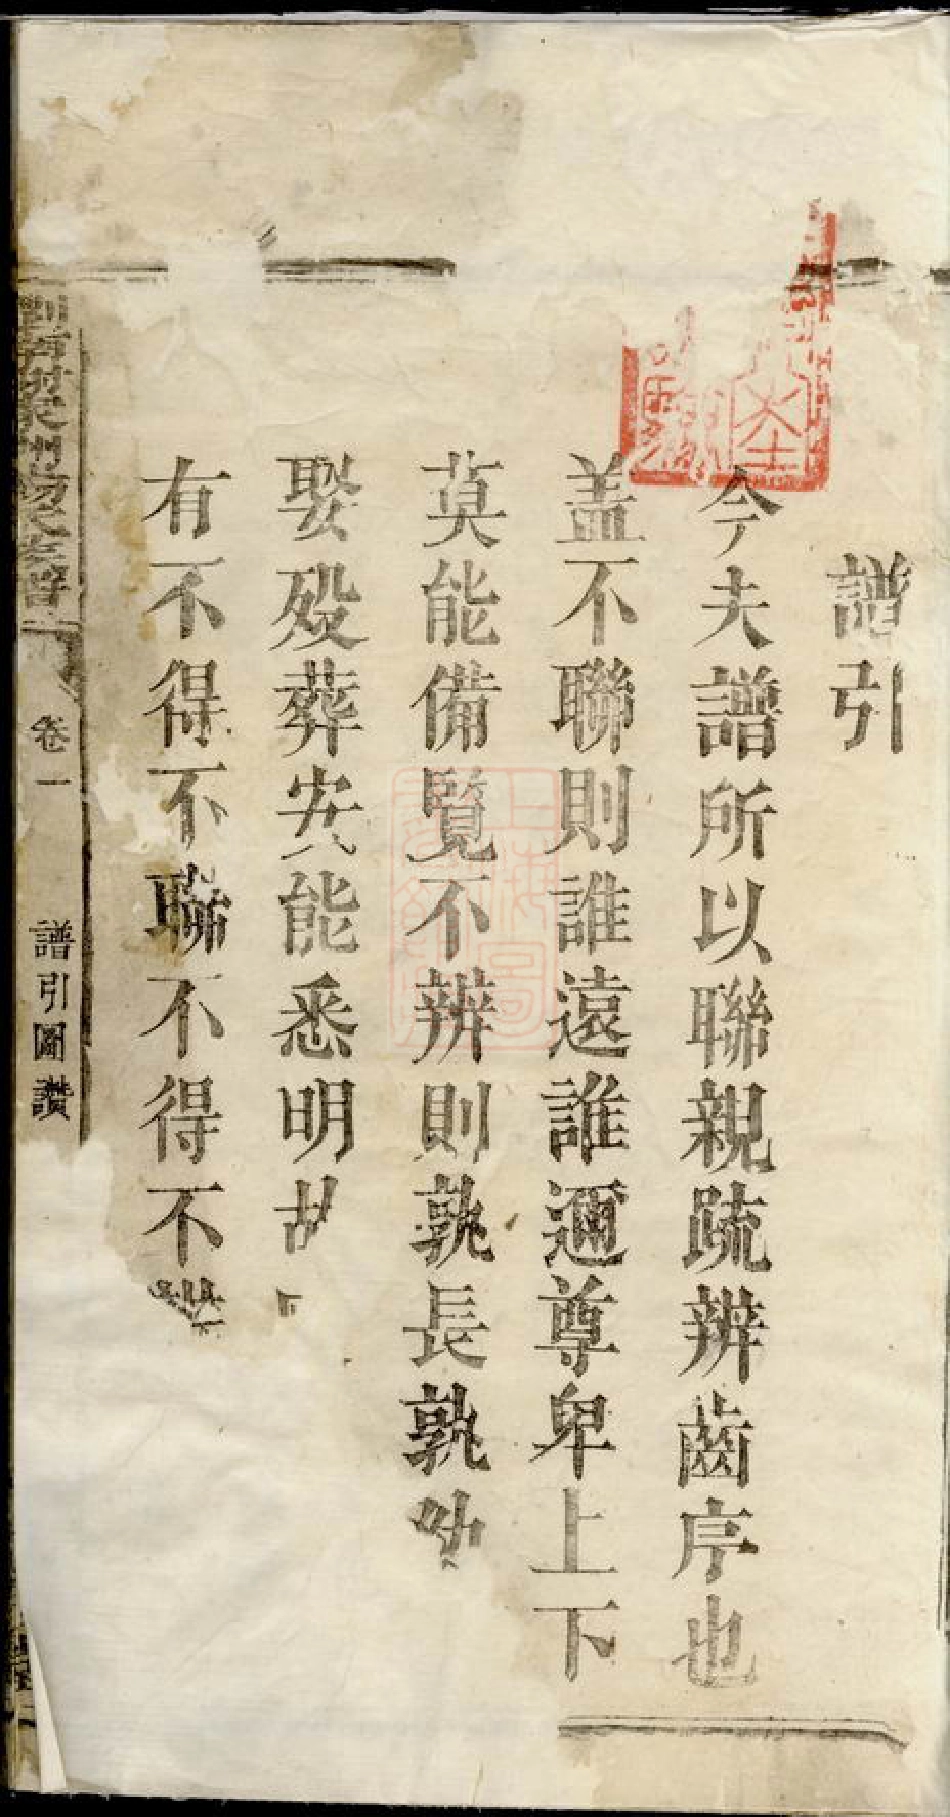 譜引
今夫譜所以聯親疏辨齒序也
盖不聯則誰遠誰邇尊卑上下
莫能備覽不辨則孰長孰幼
娶歿葬安能悉明故
有不得不聯不得不
卷一
譜引圖讚